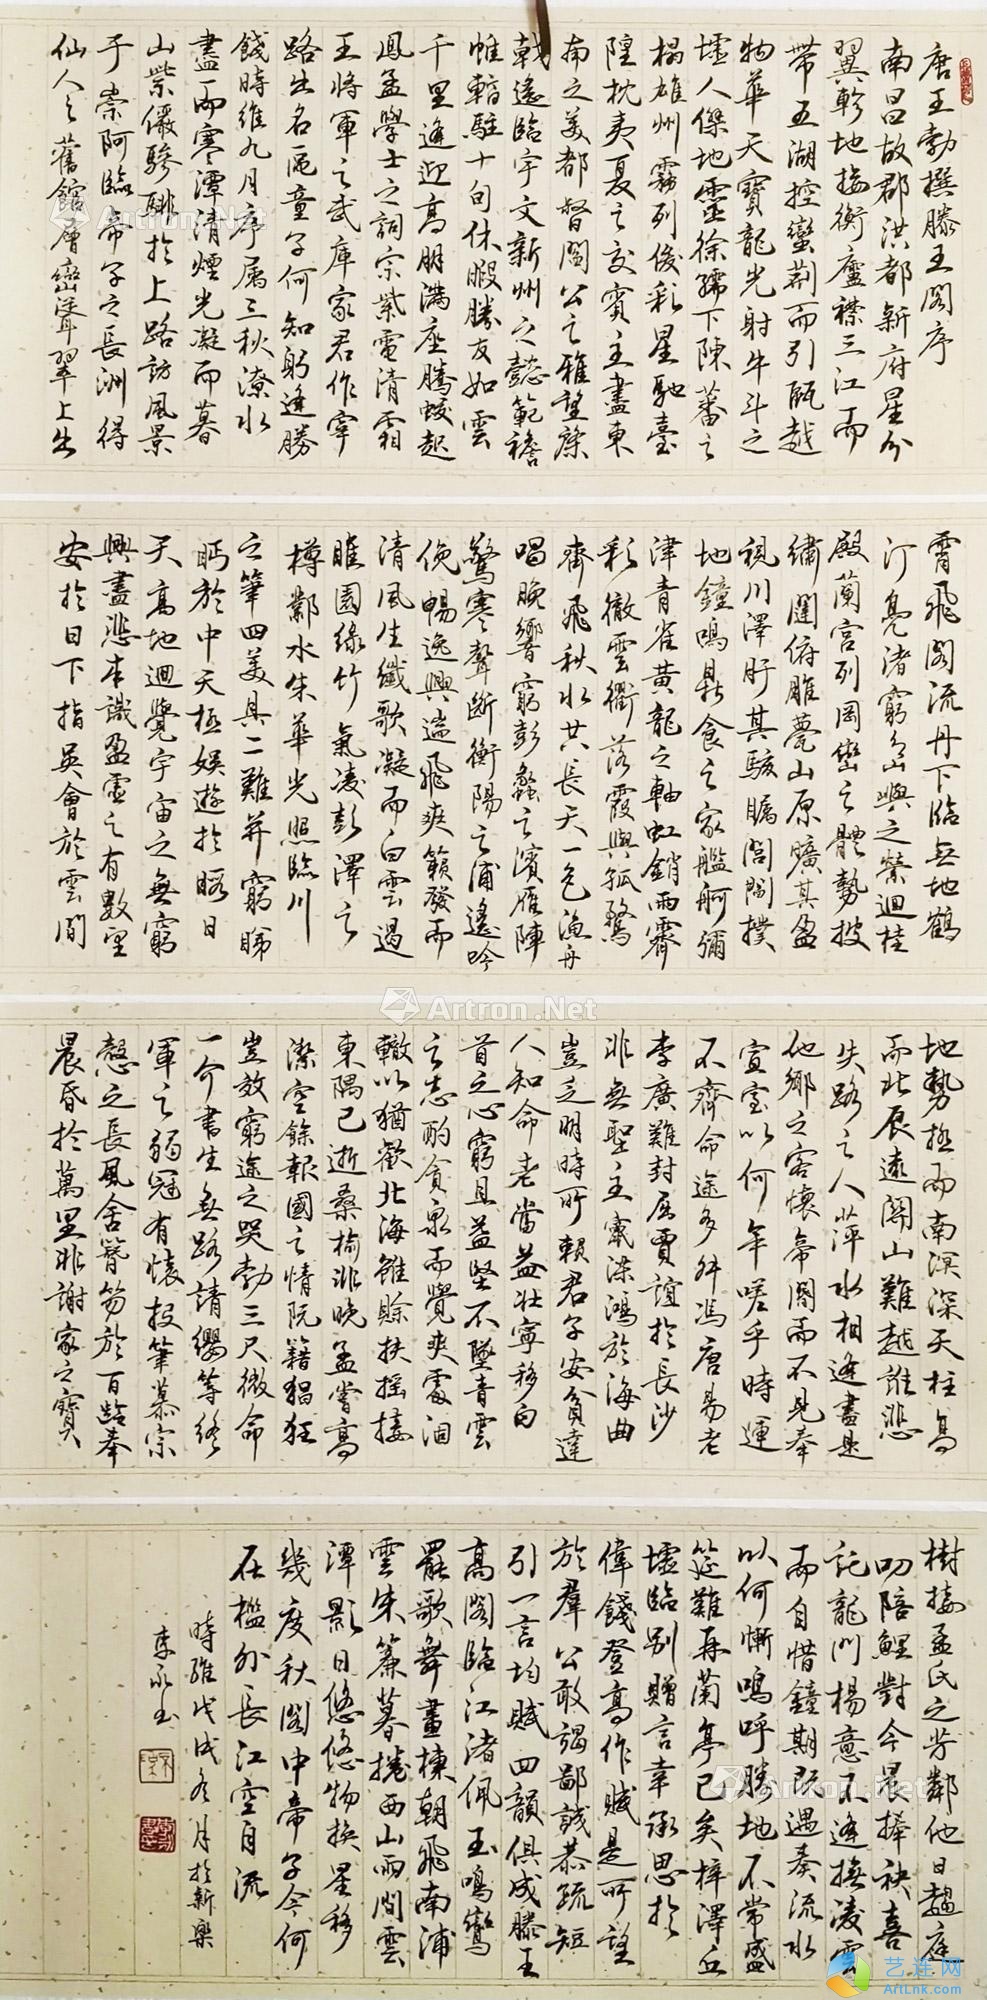 唐王勃撰滕王閣序
南昌故郡洪都新府星分
翼軫地接衡廬襟三江而
帶五湖控蠻荊而引甌越
物華天寶龍光射牛斗之
墟人傑地靈徐孺下陳蕃之
榻雄州霧列俊彩星馳臺
隍枕夷夏之交賓主盡東
南之美都督閻公之雅望棨
戟遙臨宇文新州之懿範襜
帷暫駐十旬休暇勝友如雲
千里逢迎高朋滿座騰蛟起
鳳孟學士之詞宗紫電清霜
王將軍之武庫家君作宰
路出名區童子何知躬逢勝
餞時維九月序屬三秋潦水
盡而寒潭清煙光凝而暮
山紫儼驂騑於上路訪風景
于崇阿臨帝子之長洲得
仙人之舊館層巒聳翠上出
霄飛閣流丹下臨無地鶴
汀鳧渚窮島嶼之縈迴桂
殿蘭宮列岡巒之體勢披
繡闥俯雕甍山原曠其盈
視川澤盱其駭矚閭閻撲
地鐘鳴鼎食之家艦舸彌
津青雀黃龍之軸虹銷雨霽
彩徹雲衢落霞與孤鶩
齊飛秋水共長天一色漁舟
唱晚響窮彭蠡之濱雁陣
驚寒聲斷衡陽之浦遙吟
俛暢逸興遄飛爽籟發而
清風生纖歌凝而白雲遏
睢園綠竹氣凌彭澤之
樽鄴水朱華光照臨川
之筆四美具二難并窮睇
眄於中天極娛遊於暇日
天高地迴覺宇宙之無窮
興盡悲來識盈虛之有數望
安於日下指吳會於雲間
地勢極而南溟深天柱高
而北辰遠關山難越誰悲
失路之人萍水相逢盡是
他鄉之客懷帝閽而不見奉
宣室以何年嗟乎時運
不齊命途多舛馮唐易老
李廣難封屈賈誼於長沙
非無聖主竄梁鴻於海曲
豈乏明時所賴君子安貧達
人知命老當益壯寧移白
首之心窮且益堅不墜青雲
之志酌貪泉而覺爽處涸
轍以猶歡北海雖賒扶搖接
東隅已逝桑榆非晚孟嘗高
潔空餘報國之情阮籍猖狂
豈效窮途之哭勃三尺微命
一介書生無路請纓等終
軍之弱冠有懷投筆慕宗
慤之長風舍簪笏於百齡奉
晨昏於萬里非謝家之寶
樹接孟氏之芳鄰他日趨庭
叨陪鯉對今晨捧袂喜
託龍門楊意不逢撫凌雲
而自惜鐘期既遇奏流水
以何慚嗚呼勝地不常盛
筵難再蘭亭已矣梓澤丘
墟臨別贈言幸承恩於
偉餞登高作賦是所望
於群公敢竭鄙誠恭疏短
引一言均賦四韻俱成滕王
高閣臨江渚佩玉鳴鸞
罷歌舞畫棟朝飛南浦
雲朱簾暮捲西山雨閒雲
潭影日悠悠物換星移
幾度秋閣中帝子今何
在檻外長江空自流
時維戊戌冬月於新樂
李永玉
Artron.Net
Artron.Net
Artron.Net
Artron.Net
艺连网
ArtLnk.Com